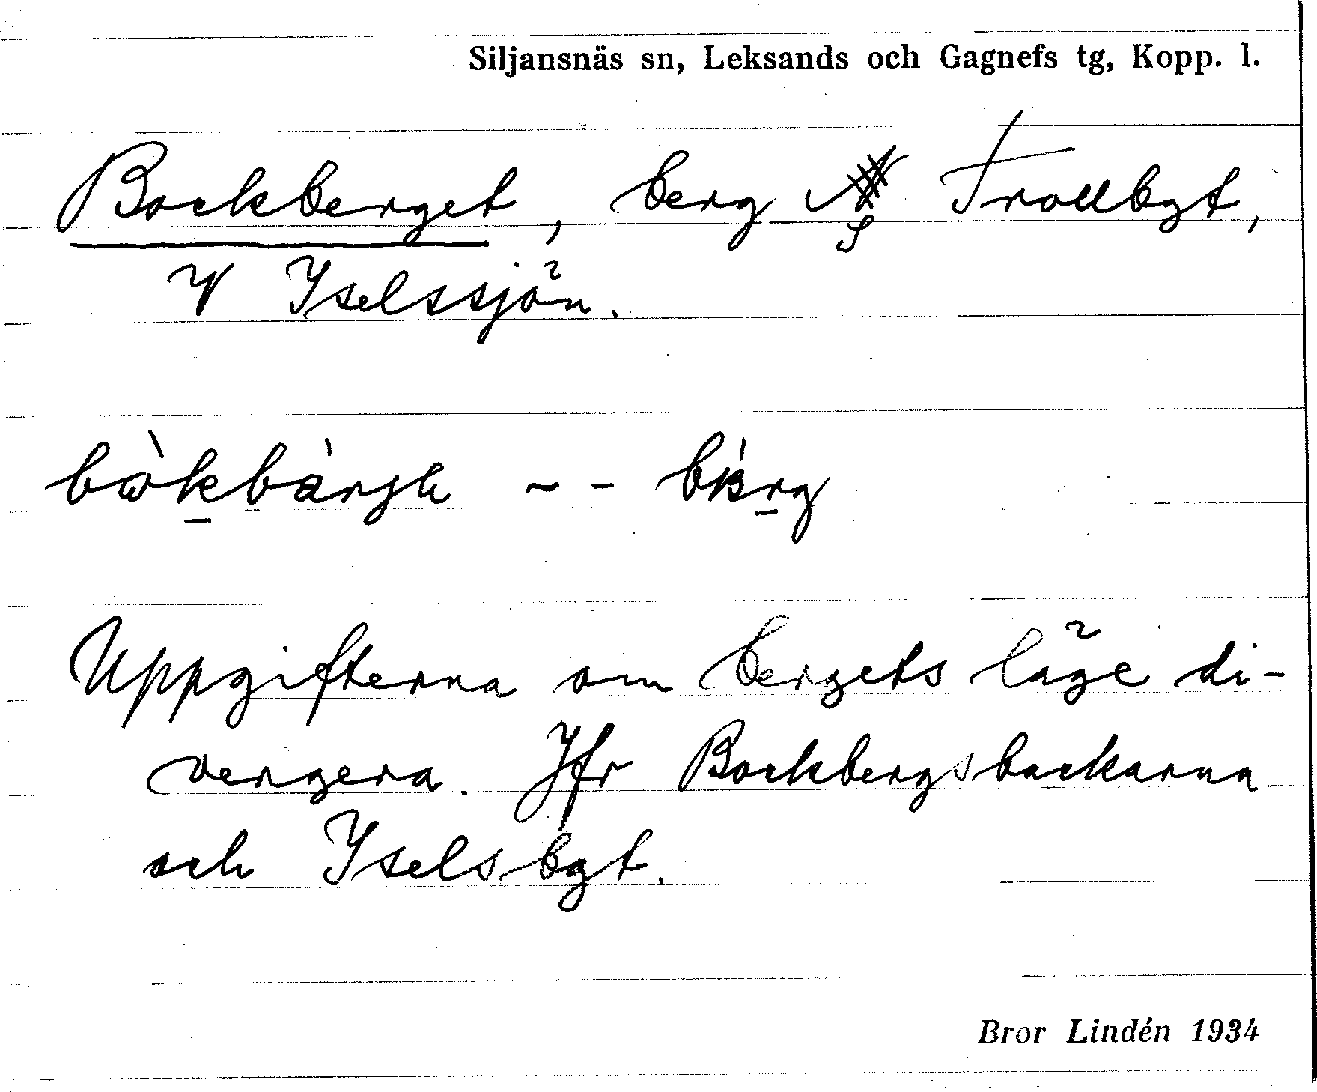 Siljansnäs sn, Leksands och Gagnefs tg, Kopp. l.
Bockberget, berg S Trollbgt,
V Iselssjön.
bòkbàrjh ~ - bàrg
Uppgifterna om bergets läge di-
vergera. Jfr Bockbergsbackarna
och Iselsbgt.
Bror Lindén 1934